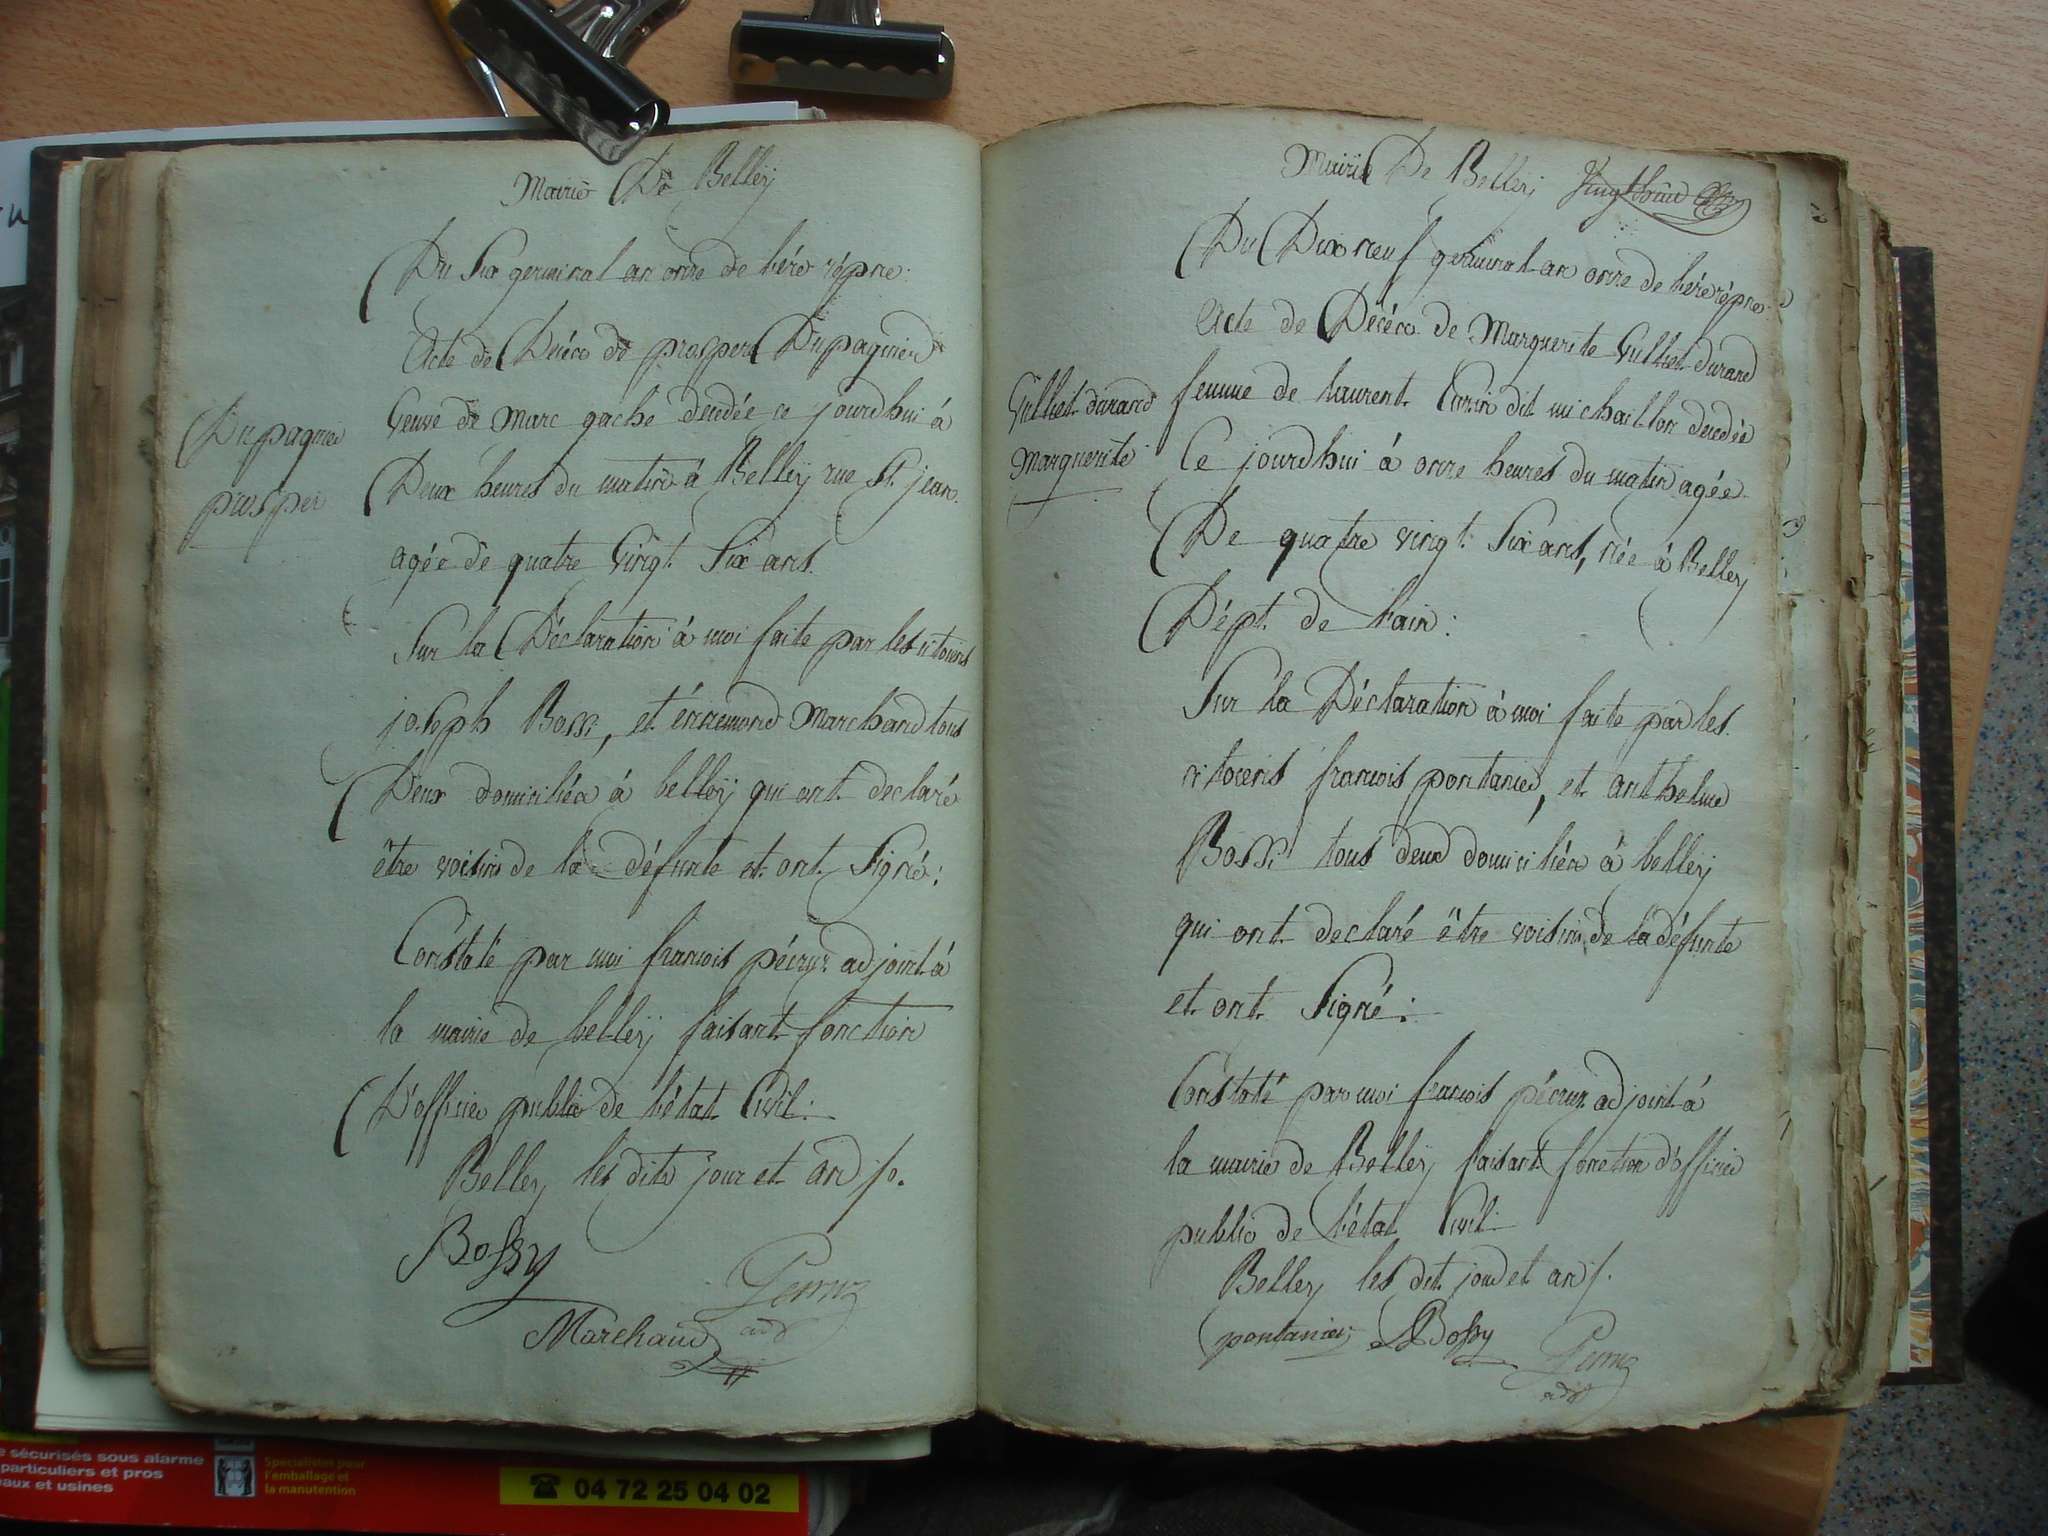 Mairie De Belleÿ
Du Six germinal an onze de l'ère répne.
Acte de Décéa de prosper Dupaquier
Dupaquier
prosper
Veuve de Marc gache decedée ce jourdhui à
Deux heures du matin à Belleÿ rue St. jean.
agée de quatre Vingt Six ans.
Sur la Déclaration à moi faite par les citoiens
joseph Bossi, et énnemond Marchand tous
Deux domiciliéa à belleÿ qui ont declaré
être voisins de la défunte et ont Signé:
Constaté par moi francois adjoint à
la mairie de belleÿ faisant fonction
D'officier public de l'état Civil:
Belley les dits jour et an
Bossy
Marchand
adj
Mairie De Belleÿ
Du Dix neuf germinal an onze de l'ère répne
Acte de Décéa de Marguerite Gulliet durand
Gulliet durand
Marguerite
femme de laurent dit michaillon decedée
Ce jourdhui à onze heures du matin agée
De quatre vingt Six ans, née à Belley
Dépt. de l'ain:
Sur la Déclaration à moi faite par les
citoiens francois pontanier, et anthelme
Bossi tous deux domiciliéa à belleÿ
qui ont declaré être voisins de la défunte
et ont Signé:
Constaté par moi francois adjoint à
la mairie de Belleÿ faisant fonction d'officier
public de l'état Civil
Belley les dit jour et an
pontanier Bossy
adj
e sécurisés sous alarme
particuliers et pros
aux et usines
Spécialistes pour
l'emballage et
la manutention
04 72 25 04 02